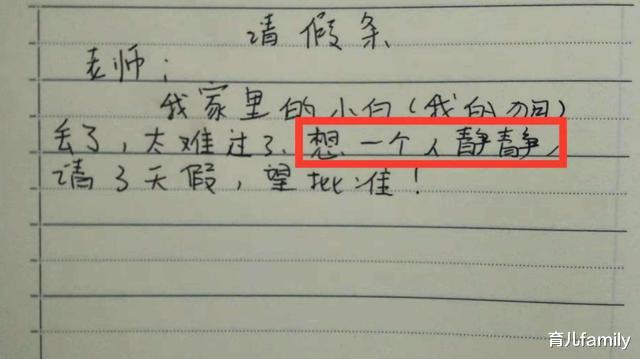 请假条
老师：
我家里的小白（我的狗）
丢了，太难过了、想一个人静静，
请3天假，望批准！
育儿family